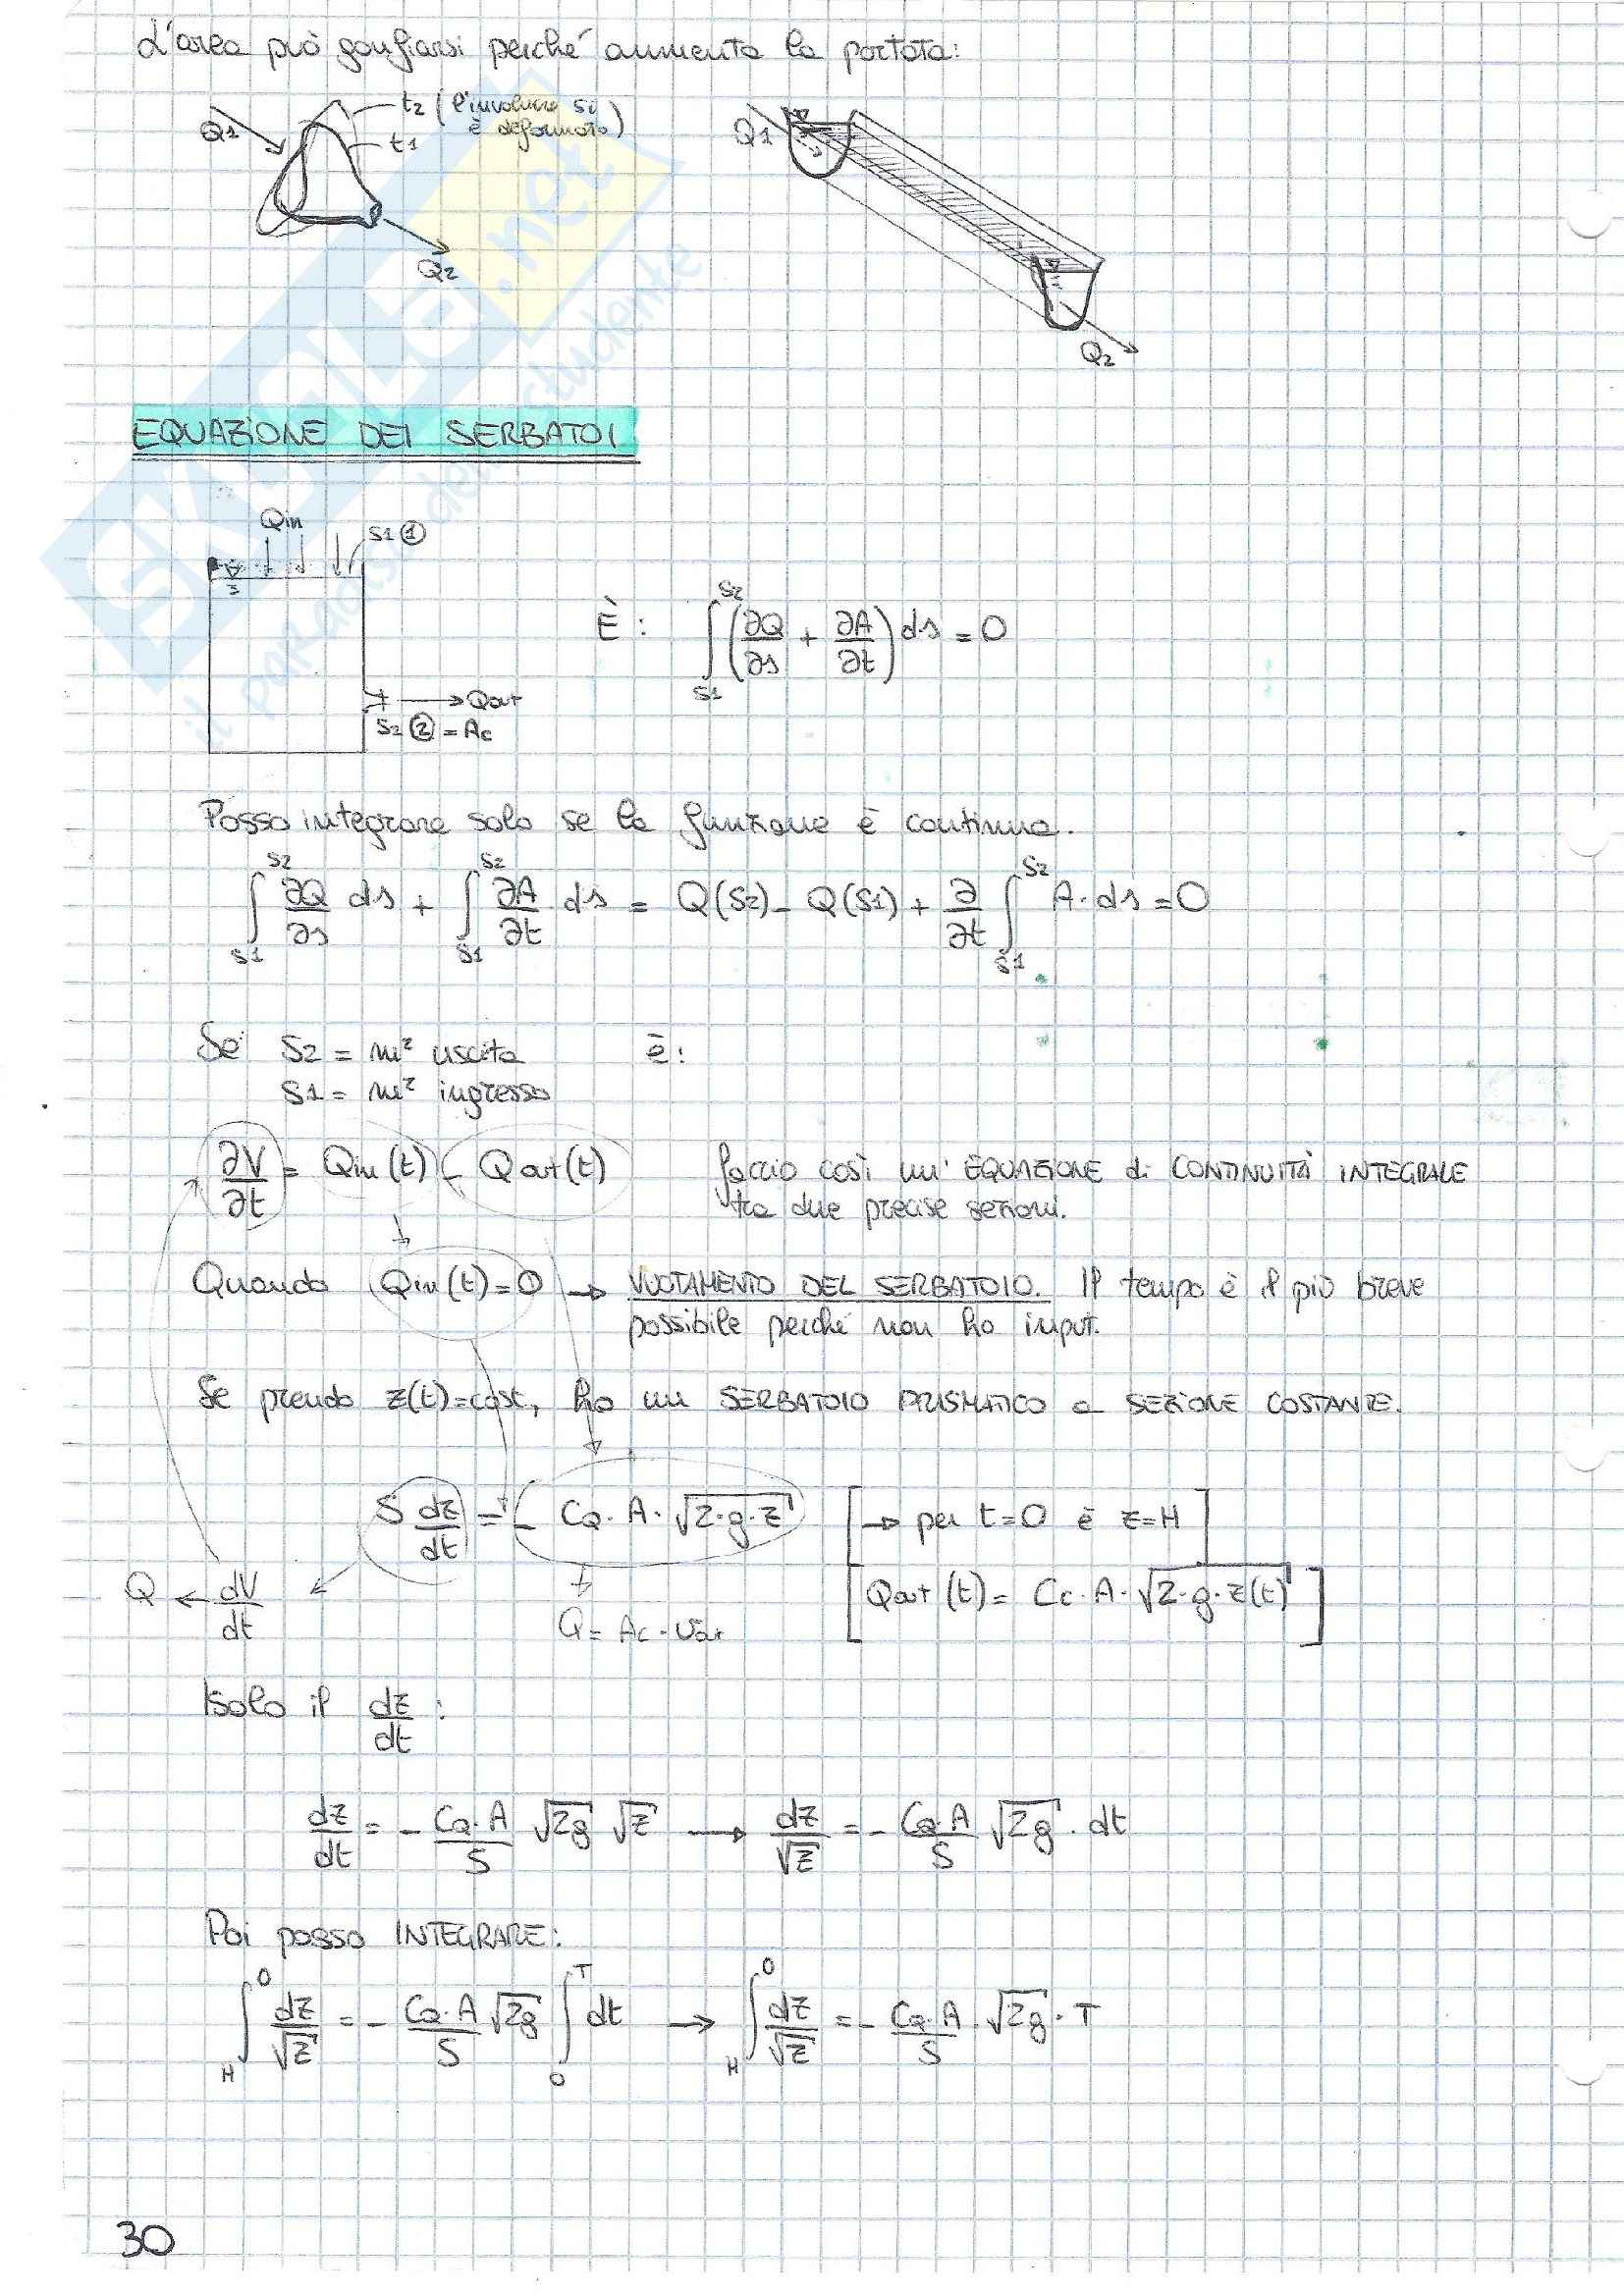 L'area può gonfiarsi perché aumenta la portata:
Q1
t2 (l'involucro si è deformato)
t1
Q2
Q1
Q2
EQUAZIONE DEI SERBATOI
Qin
S1 ①
Qout
S2 ② = Ac
È: ∫_{S1}^{S2} (∂Q/∂s + ∂A/∂t) ds = 0
Posso integrare solo se la funzione è continua.
∫_{S1}^{S2} ∂Q/∂s ds + ∫_{S1}^{S2} ∂A/∂t ds = Q(S2) - Q(S1) + ∂/∂t ∫_{S1}^{S2} A · ds = 0
Se S2 = m² uscita è:
S1 = m² ingresso
∂V/∂t = Qin(t) - Qout(t) faccio così un' EQUAZIONE di CONTINUITÀ INTEGRALE
tra due precise sezioni.
Quando Qin(t) = 0 → VUOTAMENTO DEL SERBATOIO. Il tempo è il più breve
possibile perché non ho input.
Se prendo z(t)=cost, ho un SERBATOIO PRISMATICO a SEZIONE COSTANTE.
S dz/dt = - CQ · A · √(2·g·z) [→ per t=0 è z=H]
Q ← dV/dt
Q = Ac · Vout
[Qout(t) = Cc · A · √(2·g·z(t))]
Isolo il dz/dt :
dz/dt = - CQ·A/S √2g √z → dz/√z = - CQ·A/S √2g · dt
Poi posso INTEGRARE:
∫_{H}^{0} dz/√z = - CQ·A/S √2g ∫_{0}^{T} dt → ∫_{H}^{0} dz/√z = - CQ·A/S · √2g · T
30
SKUOLA.net
il paradiso dello studente